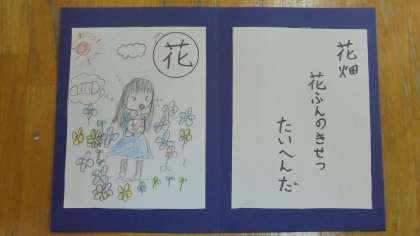 花
花畑
花ふんのきせつ
たいへんだ